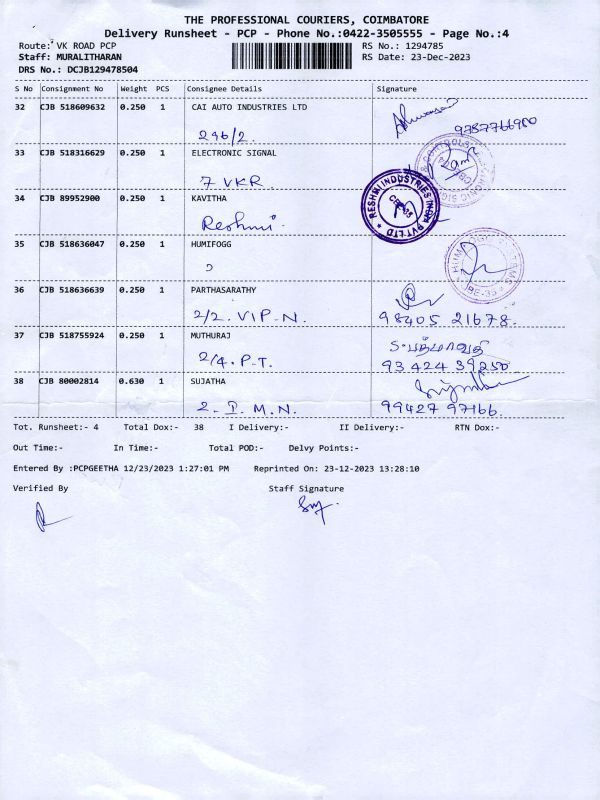 THE PROFESSIONAL COURIERS, COIMBATORE
Delivery Runsheet - PCP - Phone No.:0422-3505555 - Page No.:4
Route: VK ROAD PCP RS No.: 1294785
Staff: MURALITHARAN RS Date: 23-Dec-2023
DRS No.: DCJB129478504
S No Consignment No Weight PCS Consignee Details Signature
32 CJB 518609632 0.250 1 CAI AUTO INDUSTRIES LTD
296/2. 9787766900
33 CJB 518316629 0.250 1 ELECTRONIC SIGNAL
7 VKR.
34 CJB 89952900 0.250 1 KAVITHA
Reshmi. RESHMI INDUSTRIES INDIA PVT LTD
35 CJB 518636047 0.250 1 HUMIFOGG
36 CJB 518636639 0.250 1 PARTHASARATHY
2/2. VIP-N. 98405 21678.
37 CJB 518755924 0.250 1 MUTHURAJ
2/4. P.T. 93424 39250
38 CJB 80002814 0.630 1 SUJATHA
2. I. M. N. 99427 97166.
Tot. Runsheet:- 4 Total Dox:- 38 I Delivery:- II Delivery:- RTN Dox:-
Out Time:- In Time:- Total POD:- Delvy Points:-
Entered By :PCPGEETHA 12/23/2023 1:27:01 PM Reprinted On: 23-12-2023 13:28:10
Verified By Staff Signature